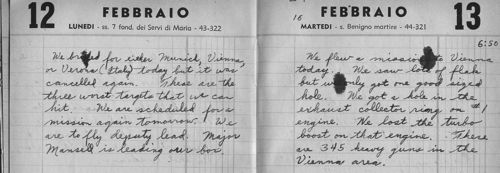 12 FEBBRAIO
LUNEDI - ss. 7 fond. dei Servi di Maria - 43-322
We briefed for either Munich, Vienna,
or Verona (Italy) today but it was
cancelled again. These are the
three worst targets that we can
hit. We are scheduled for a
mission again tomorrow. We
are to fly deputy lead. Major
Mansell is leading our box.
16 FEBBRAIO 13
MARTEDI - s. Benigno martire - 44-321
6:50
We flew a mission to Vienna
today. We saw lots of flak
but only got one good sized
hole. We got a hole in the
exhaust collector ring on #1
engine. We lost the turbo
boost on that engine. There
are 345 heavy guns in the
Vienna area.